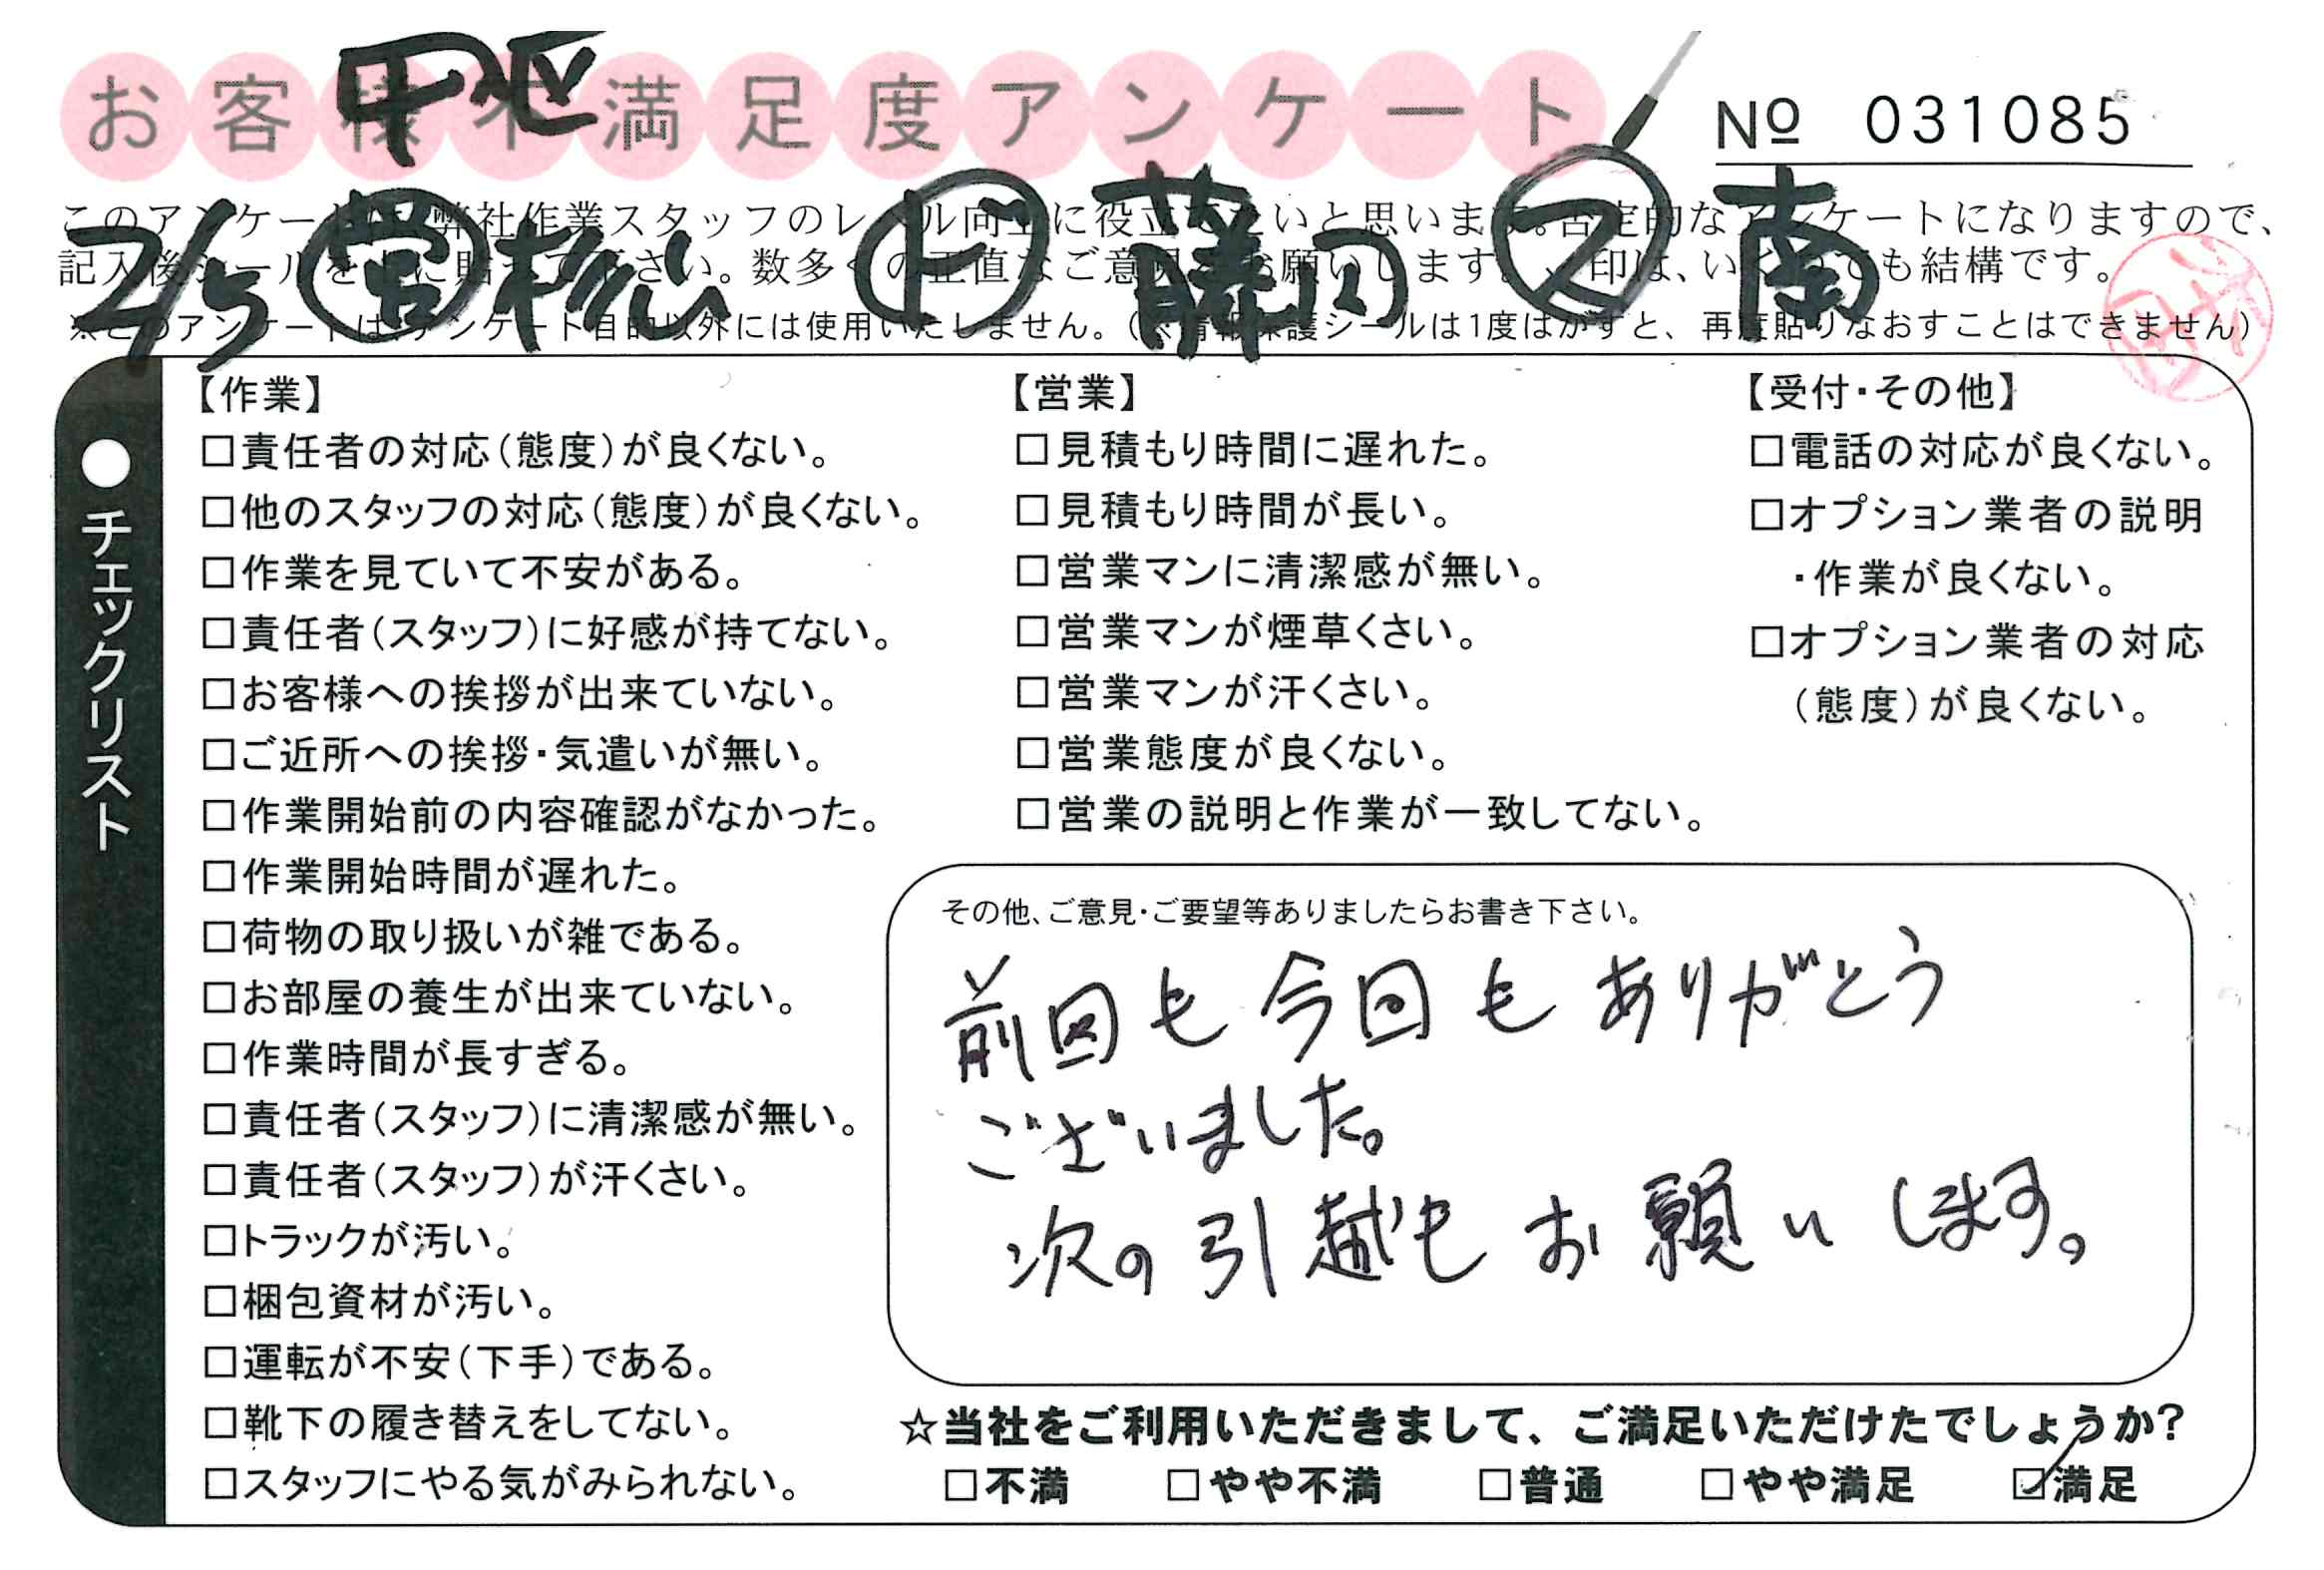 お客様不満足度アンケート
№ 031085
このアンケートは、弊社作業スタッフのレベル向上に役立てたいと思います。否定的なアンケートになりますので、
記入後シールを上に貼って下さい。数多くの正直なご意見をお願いします。レ印は、いくつでも結構です。
※このアンケートは、アンケート目的以外には使用いたしません。(※情報保護シールは1度はがすと、再度貼りなおすことはできません)
2/5 営 杉山 ド 藤田 ス 南
●チェックリスト
【作業】
□責任者の対応(態度)が良くない。
□他のスタッフの対応(態度)が良くない。
□作業を見ていて不安がある。
□責任者(スタッフ)に好感が持てない。
□お客様への挨拶が出来ていない。
□ご近所への挨拶・気遣いが無い。
□作業開始前の内容確認がなかった。
□作業開始時間が遅れた。
□荷物の取り扱いが雑である。
□お部屋の養生が出来ていない。
□作業時間が長すぎる。
□責任者(スタッフ)に清潔感が無い。
□責任者(スタッフ)が汗くさい。
□トラックが汚い。
□梱包資材が汚い。
□運転が不安(下手)である。
□靴下の履き替えをしてない。
□スタッフにやる気がみられない。
【営業】
□見積もり時間に遅れた。
□見積もり時間が長い。
□営業マンに清潔感が無い。
□営業マンが煙草くさい。
□営業マンが汗くさい。
□営業態度が良くない。
□営業の説明と作業が一致してない。
【受付・その他】
□電話の対応が良くない。
□オプション業者の説明
・作業が良くない。
□オプション業者の対応
(態度)が良くない。
その他、ご意見・ご要望等ありましたらお書き下さい。
前回も今回もありがとう
ございました。
次の引越もお願いします。
☆当社をご利用いただきまして、ご満足いただけたでしょうか?
□不満 □やや不満 □普通 □やや満足 ☑満足